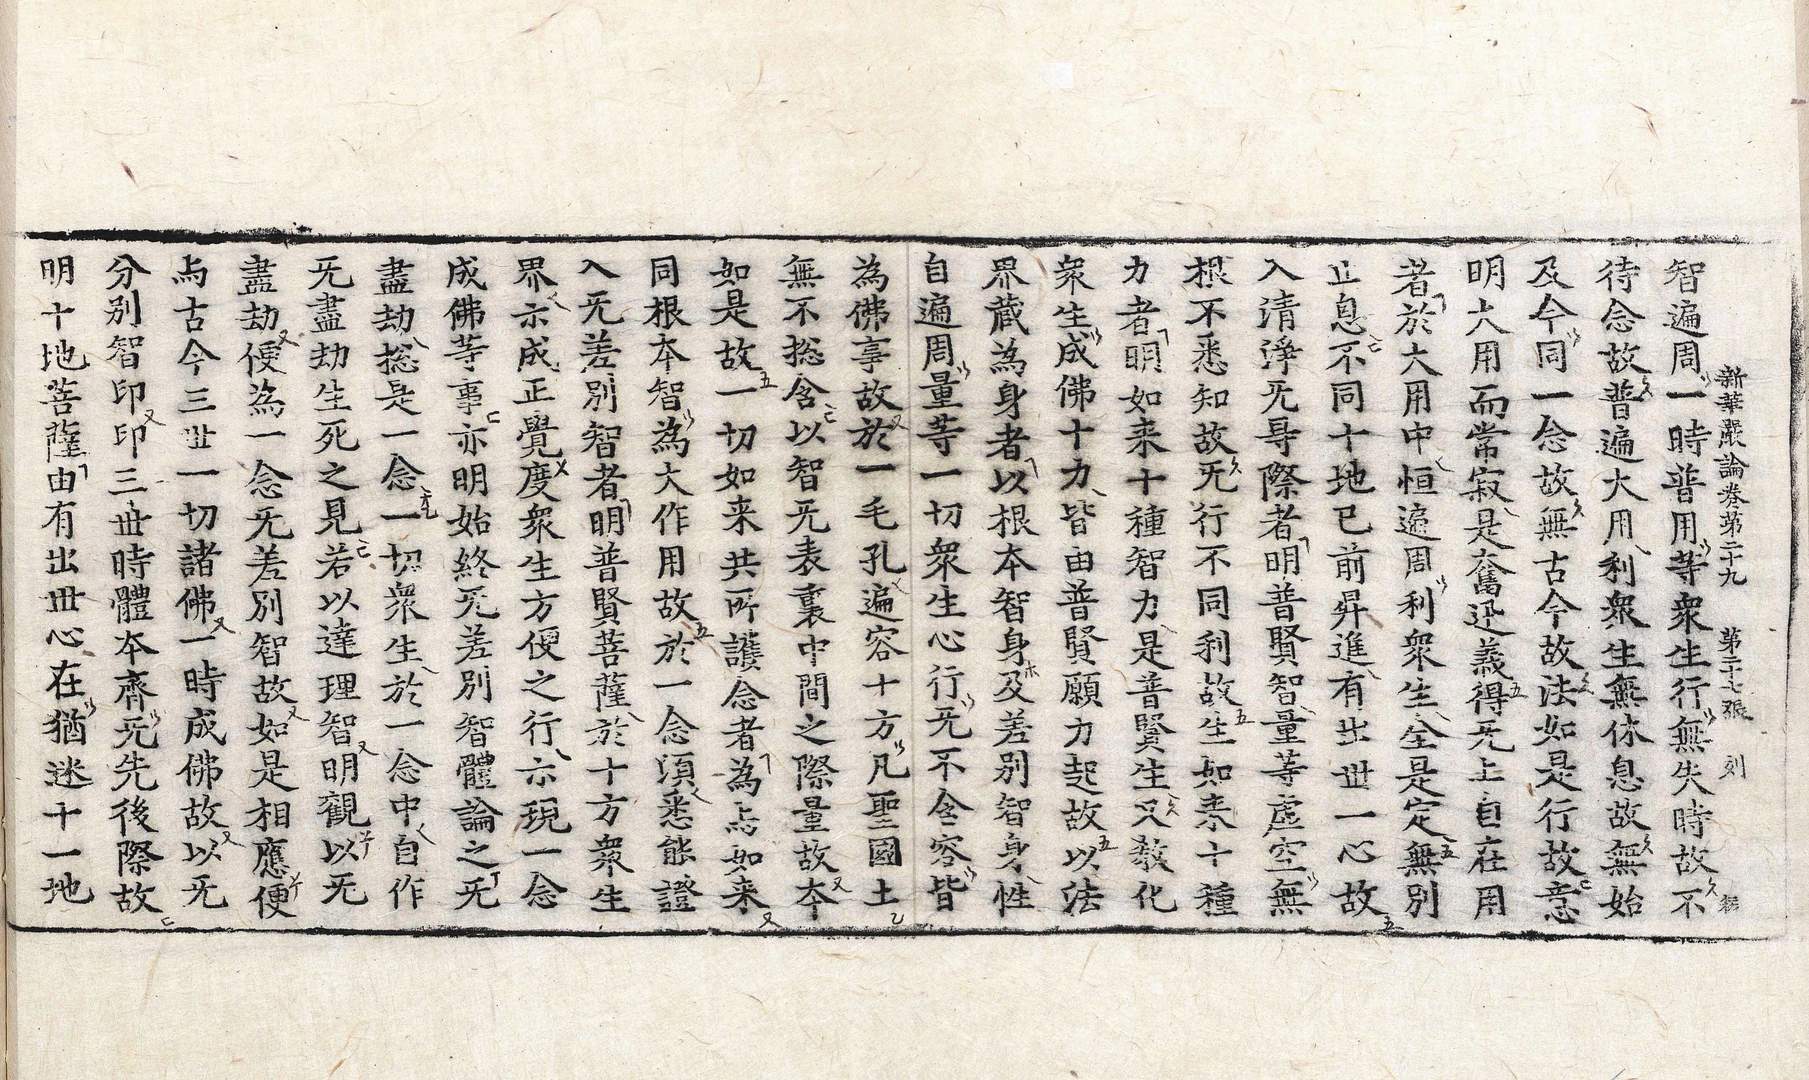 新華嚴論卷第二十九　第二十七張　刻
智遍周一時普用等衆生行無失時故不
待念故普遍大用利衆生無休息故無始
及今同一念故無古今故法如是行故意
明大用而常寂是奮迅義得无上自在用
者於大用中恒遍周利衆生全是定無別
止息不同十地已前昇進有出世一心故
入清淨无㝵際者明普賢智量等虛空無
根不悉知故无行不同利故生如来十種
力者明如来十種智力是普賢生又敎化
衆生成佛十力皆由普賢願力起故以法
界蔵為身者以根本智身及差別智身性
自遍周量等一切衆生心行无不含容皆
為佛事故於一毛孔遍容十方凡聖國土
無不揔含以智无表裏中間之際量故本
如是故一切如来共所護念者為与如来
同根本智為大作用故於一念湏悉能證
入无差別智者明普賢菩薩於十方衆生
界示成正覺度衆生方便之行示現一念
成佛等事亦明始終无差別智體論之无
盡劫揔是一念一切衆生於一念中自作
无盡劫生死之見若以達理智明觀以无
盡劫便為一念无差別智故如是相應便
与古今三世一切諸佛一時成佛故以无
分別智印印三世時體本齊无先後際故
明十地菩薩由有出世心在猶迷十一地